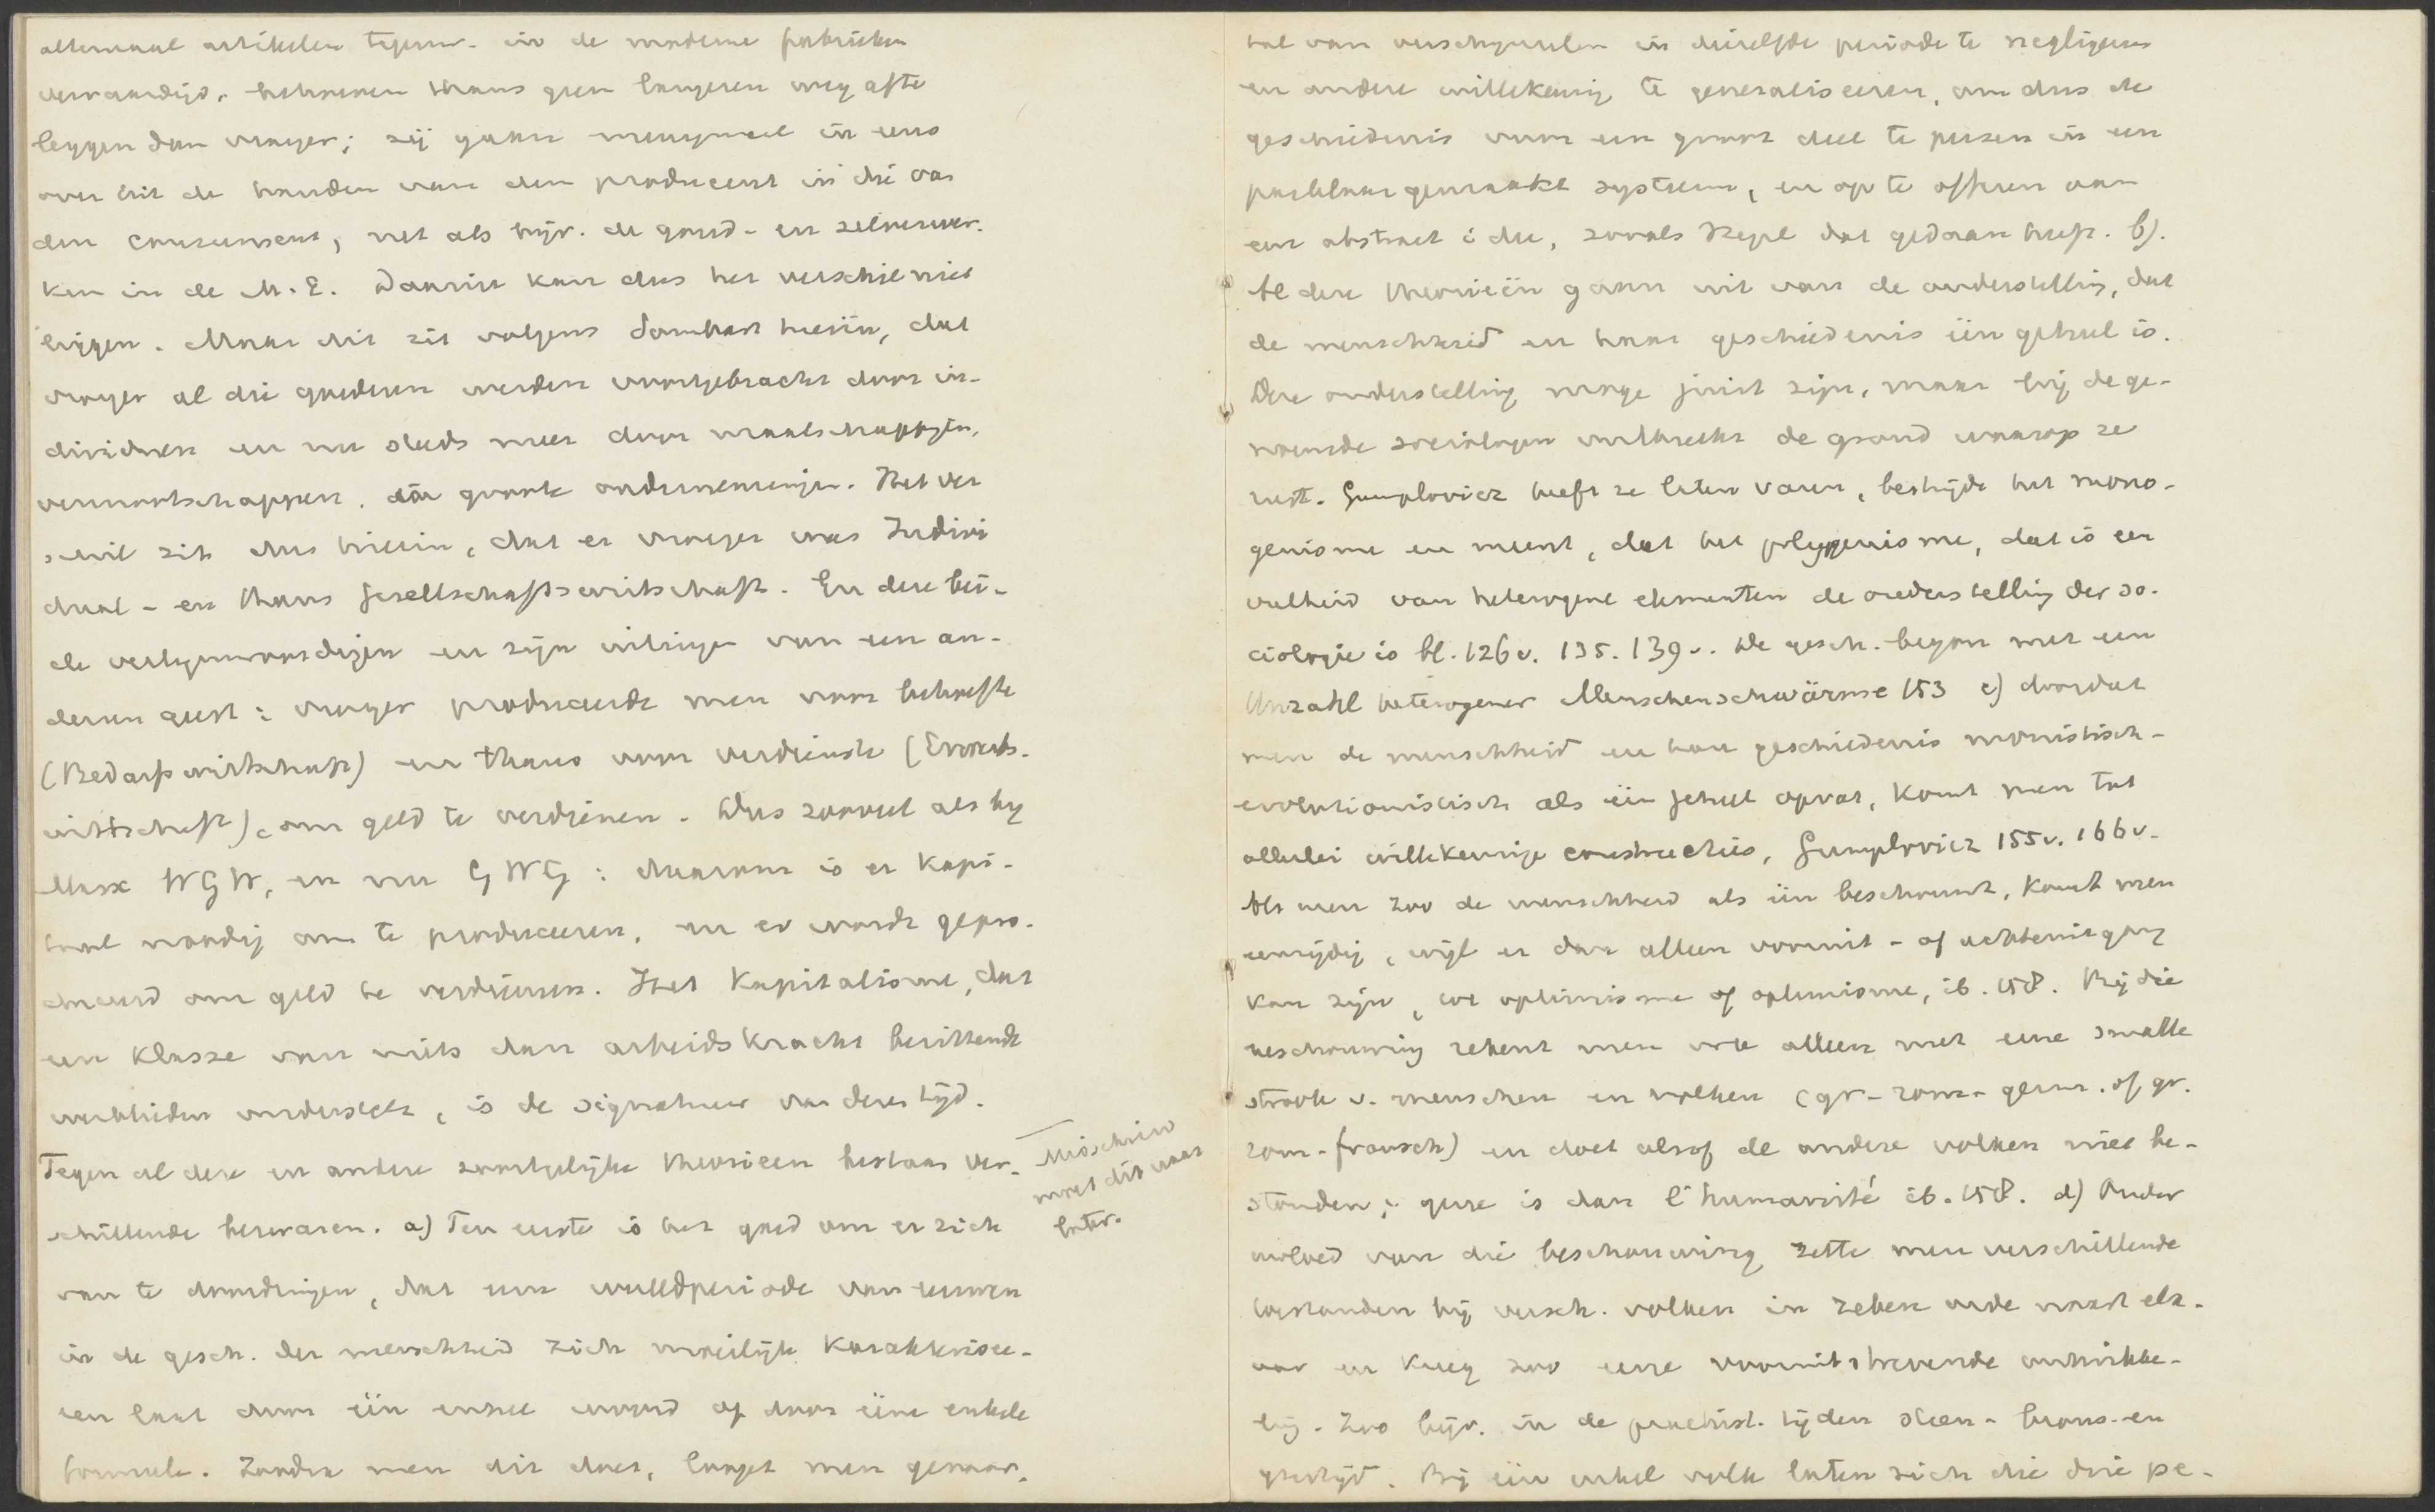 allemaal artikelen tegenw. in de moderne fabrieken
vervaardigd, behoeven thans geen langeren weg af te
leggen dan vroeger; zij gaan menigmaal in eens
over uit de handen van den producent in die van
den consument, net als bijv. de goud- en zilverwer-
ken in de M.E. Daarin kan dus het verschil niet
liggen. Maar dit zit volgens Sombart hierin, dat
vroeger al die goederen werden voortgebracht door in-
dividuen en nu steeds meer door maatschappijen,
vennootschappen, door groote ondernemingen. Het ver
schil zit dus hierin, dat er vroeger was Indivi
dual- en thans Gesellschaftswirtschaft. En deze bei-
de vertegenwoordigen en zijn uitingen van een an-
deren geest: vroeger produceerde men voor behoefte
(Bedarfswirtschaft) en thans voor verdienste (Erwerbs-
wirtschaft), om geld te verdienen. Dus zooveel als bij
Marx WGW, en nu GWG: daarom is er kapi-
taal noodig om te produceeren, en er wordt gepro-
duceerd om geld te verdienen. Het Kapitalisme, dat
een klasse van niets dan arbeidskracht bezittende
werklieden onderstelt, is de signatuur van dezen tijd.
Tegen al deze en andere soortgelijke theorieën bestaan ver-
schillende bezwaren. a) Ten eerste is het goed om er zich
van te doordringen, dat eene wereldperiode van eeuwen
in de gesch. der menschheid zich moeilijk karakterisee-
ren laat door één enkel woord of door eene enkele
formule. Zoodra men dit doet, loopt men gevaar,
Misschien
moet dit naar
later.
tal van verschijnselen in diezelfde periode te negligeeren
en andere willekeurig te generaliseeren, om dus de
geschiedenis voor een groot deel te persen in een
pasklaar gemaakt systeem, en op te offeren aan
een abstract idee, zooals Hegel dat gedaan heeft. b).
Al deze theorieën gaan uit van de onderstelling, dat
de menschheid en haar geschiedenis één geheel is.
Deze onderstelling moge juist zijn, maar bij de ge-
noemde sociologen ontbreekt de grond waarop ze
rust. Gumplovicz heeft ze laten varen, bestrijdt het mono-
genisme en meent, dat het polygenisme, dat is een
veelheid van heterogene elementen de onderstelling der so-
ciologie is bl. 126v. 135. 139v. De gesch. begon met een
Unzahl heterogener Menschenschwärme 153 c) doordat
men de menschheid en haar geschiedenis monistisch-
evolutionistisch als één geheel opvat, komt men tot
allerlei willekeurige constructies, Gumplovicz 155v. 166v.
Als men zoo de menschheid als één beschouwt, komt men
eenzijdig, wijl er dan alleen vooruit- of achteruitgang
kan zijn, ib. 158. Bij die
beschouwing rekent men ook alleen met eene smalle
strook v. menschen en volken (gr-rom-germ. of gr.
rom-fransch) en doet alsof de andere volken niet be-
stonden; is dan l'humanité ib. 158. d) Onder
invloed van die beschouwing zette men verschillende
toestanden bij versch. volken in zekere orde naast elk-
aar en kreeg zoo eene vooruitstrevende ontwikke-
ling. Zoo bijv. in de praehist. tijden steen- brons- en
ijzertijd. Bij één enkel volk laten zich die drie pe-